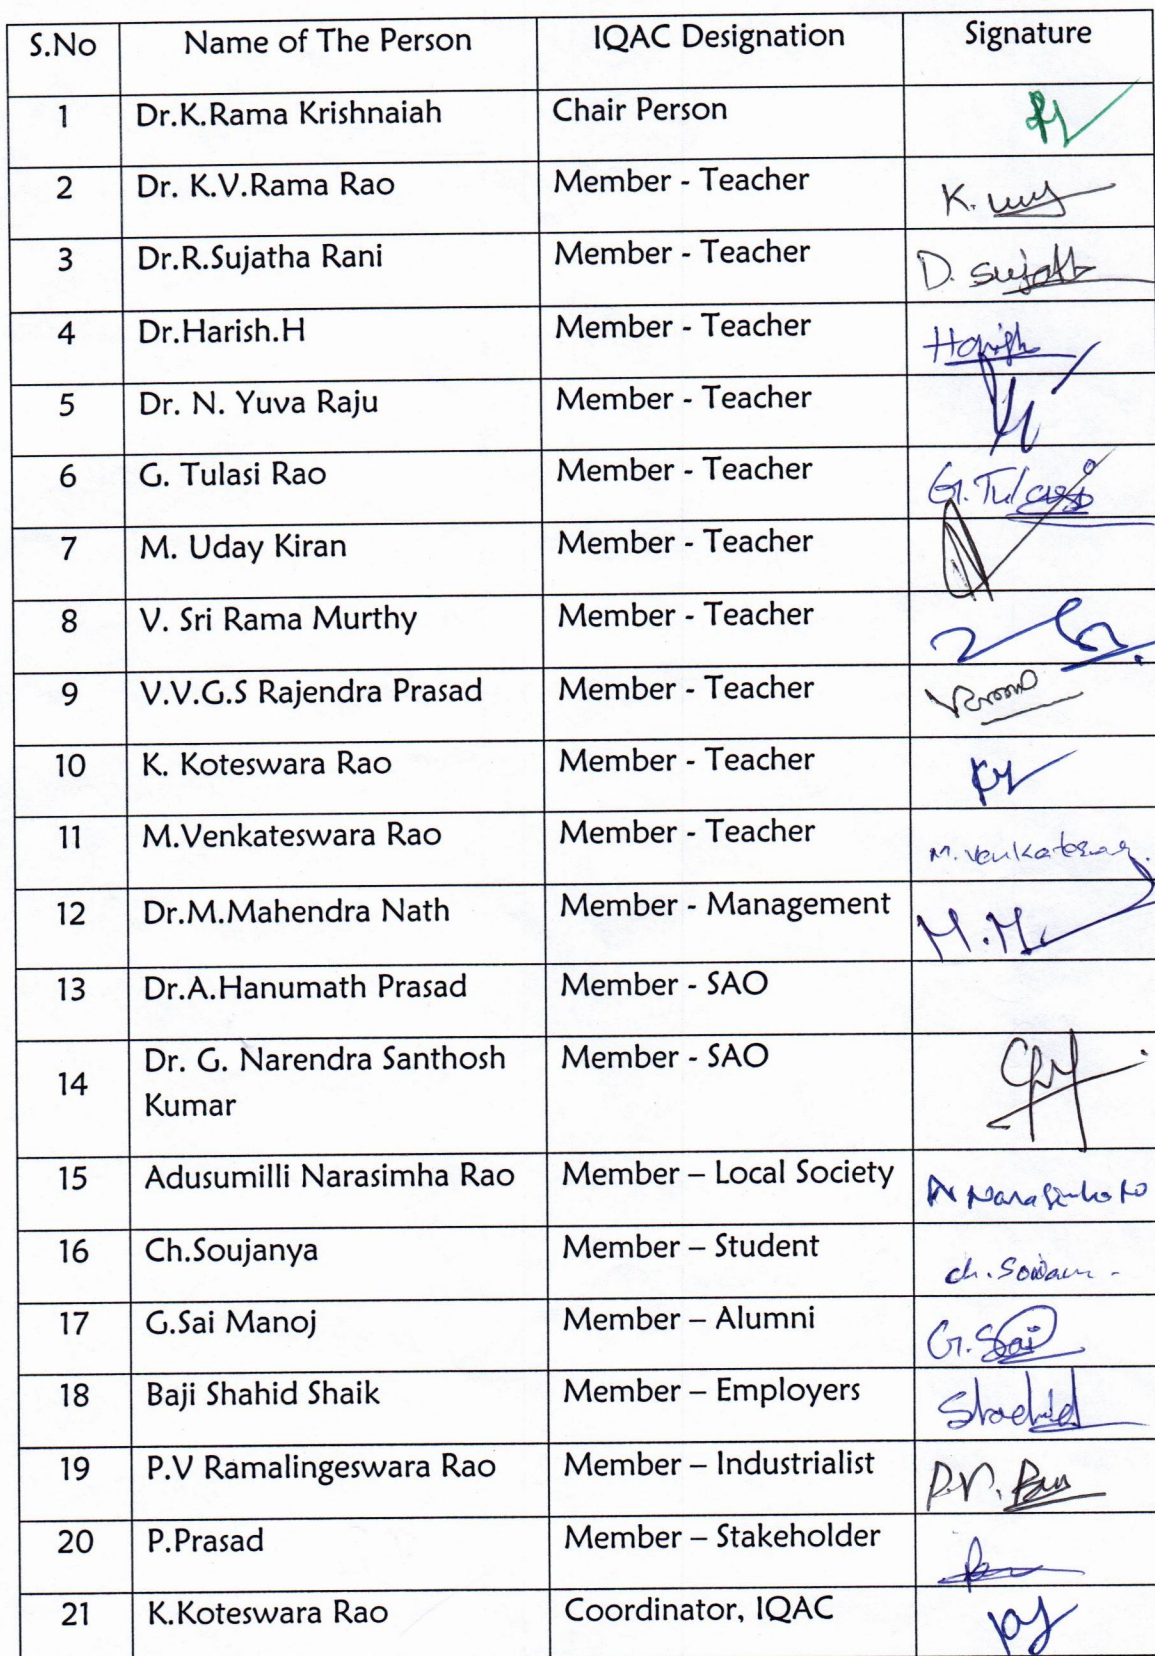 S.No Name of The Person IQAC Designation Signature
1 Dr.K.Rama Krishnaiah Chair Person
2 Dr. K.V.Rama Rao Member - Teacher K.
3 Dr.R.Sujatha Rani Member - Teacher D. Sujatha
4 Dr.Harish.H Member - Teacher Harish
5 Dr. N. Yuva Raju Member - Teacher
6 G. Tulasi Rao Member - Teacher G. Tulasi
7 M. Uday Kiran Member - Teacher
8 V. Sri Rama Murthy Member - Teacher
9 V.V.G.S Rajendra Prasad Member - Teacher
10 K. Koteswara Rao Member - Teacher
11 M.Venkateswara Rao Member - Teacher M. Venkateswar
12 Dr.M.Mahendra Nath Member - Management M.M
13 Dr.A.Hanumath Prasad Member - SAO
14 Dr. G. Narendra Santhosh Member - SAO
Kumar
15 Adusumilli Narasimha Rao Member – Local Society
16 Ch.Soujanya Member – Student ch.
17 G.Sai Manoj Member – Alumni G. Sai
18 Baji Shahid Shaik Member – Employers Shahid
19 P.V Ramalingeswara Rao Member – Industrialist P.V.
20 P.Prasad Member – Stakeholder
21 K.Koteswara Rao Coordinator, IQAC